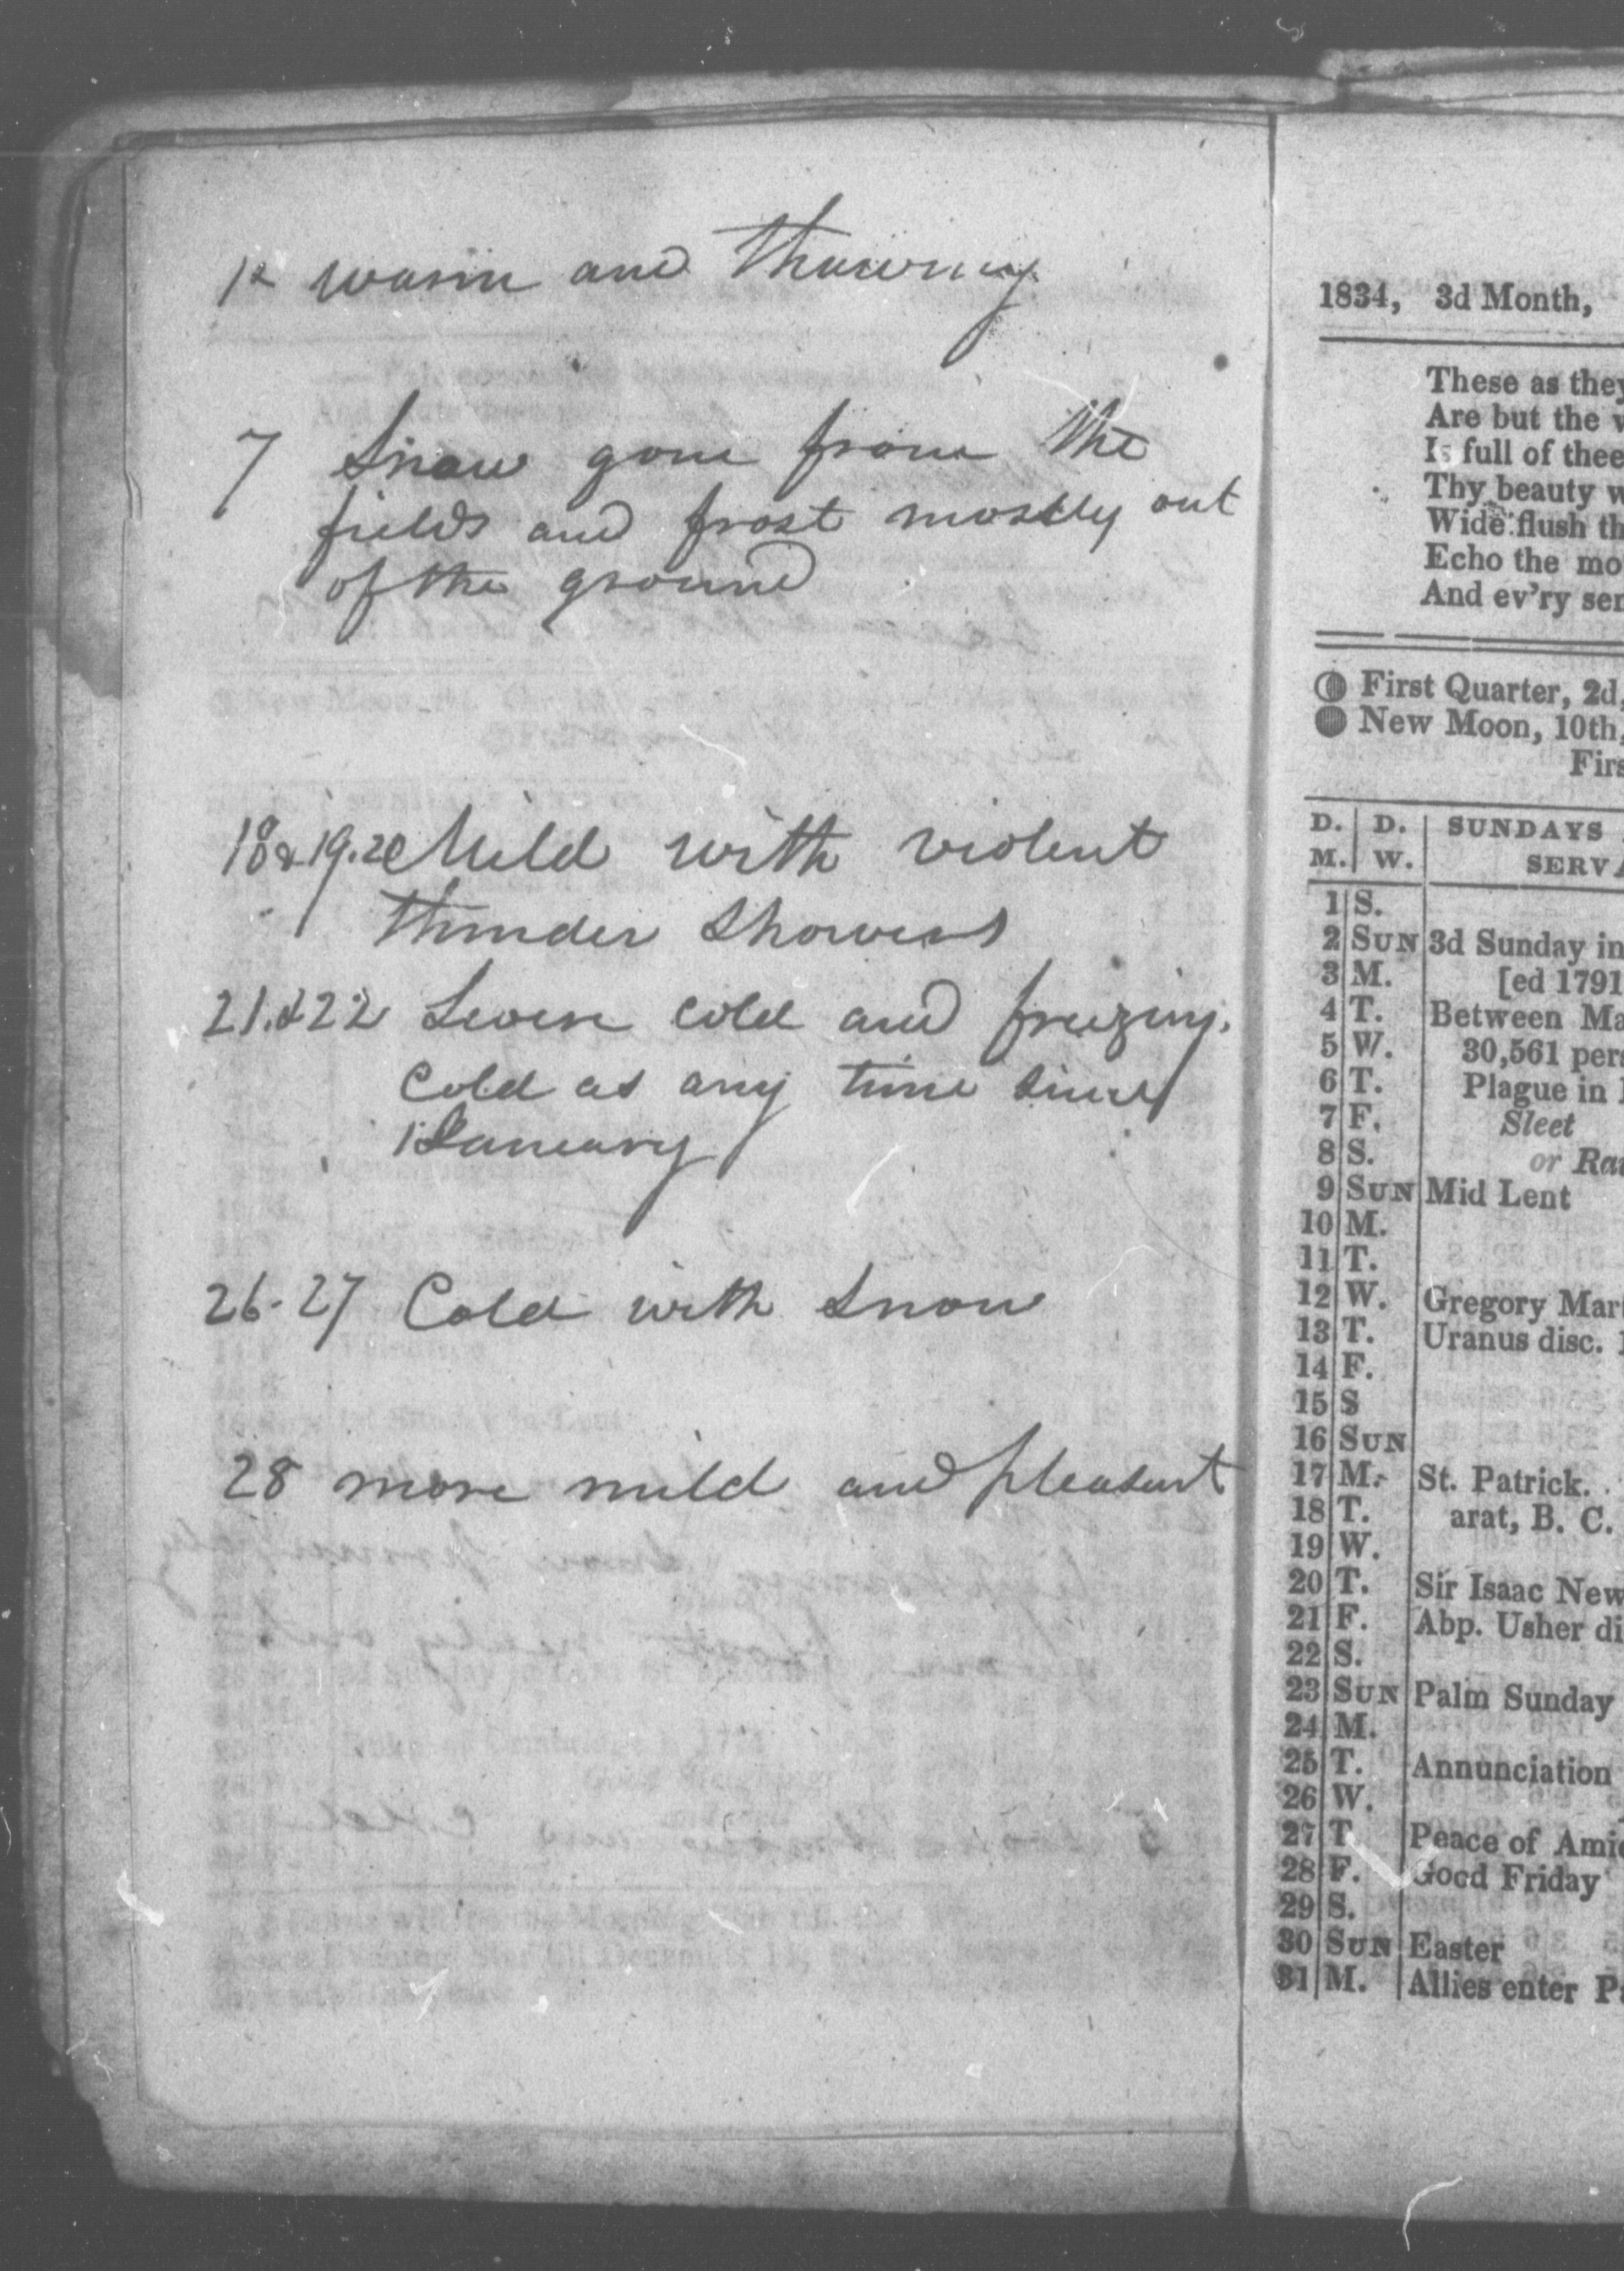 12 warm and Thawing
7 Snow gone from the
fields and frost mostly out
of the ground
18 & 19. 20 Mild with violent
Thunder Showers
21. & 22 Severe cold and freezing.
Cold as any time since
January
26 - 27 Cold with Snow
28 more mild and pleasant
1834, 3d Month,
These as they
Are but the v
Is full of thee
Thy beauty w
Wide flush th
Echo the mo
And ev'ry sen
First Quarter, 2d,
New Moon, 10th,
Firs
D. | D. | SUNDAYS
M. | W. | SERVA
1 S.
2 SUN 3d Sunday in
3 M. [ed 1791
4 T. Between Ma
5 W. 30,561 pers
6 T. Plague in
7 F. Sleet
8 S. or Rai
9 SUN Mid Lent
10 M.
11 T.
12 W. Gregory Mar
13 T. Uranus disc.
14 F.
15 S
16 SUN
17 M. St. Patrick.
18 T. arat, B. C.
19 W.
20 T. Sir Isaac New
21 F. Abp. Usher di
22 S.
23 SUN Palm Sunday
24 M.
25 T. Annunciation
26 W.
27 T. Peace of Amie
28 F. Good Friday
29 S.
30 SUN Easter
31 M. Allies enter Pa